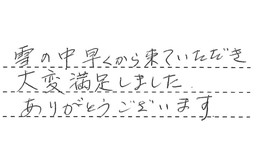 雪の中早くから来ていただき
大変満足しました.
ありがとうございます